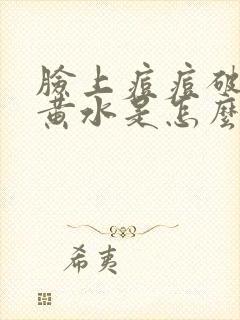 臉上痘痘破
黃水是怎麼
希夷